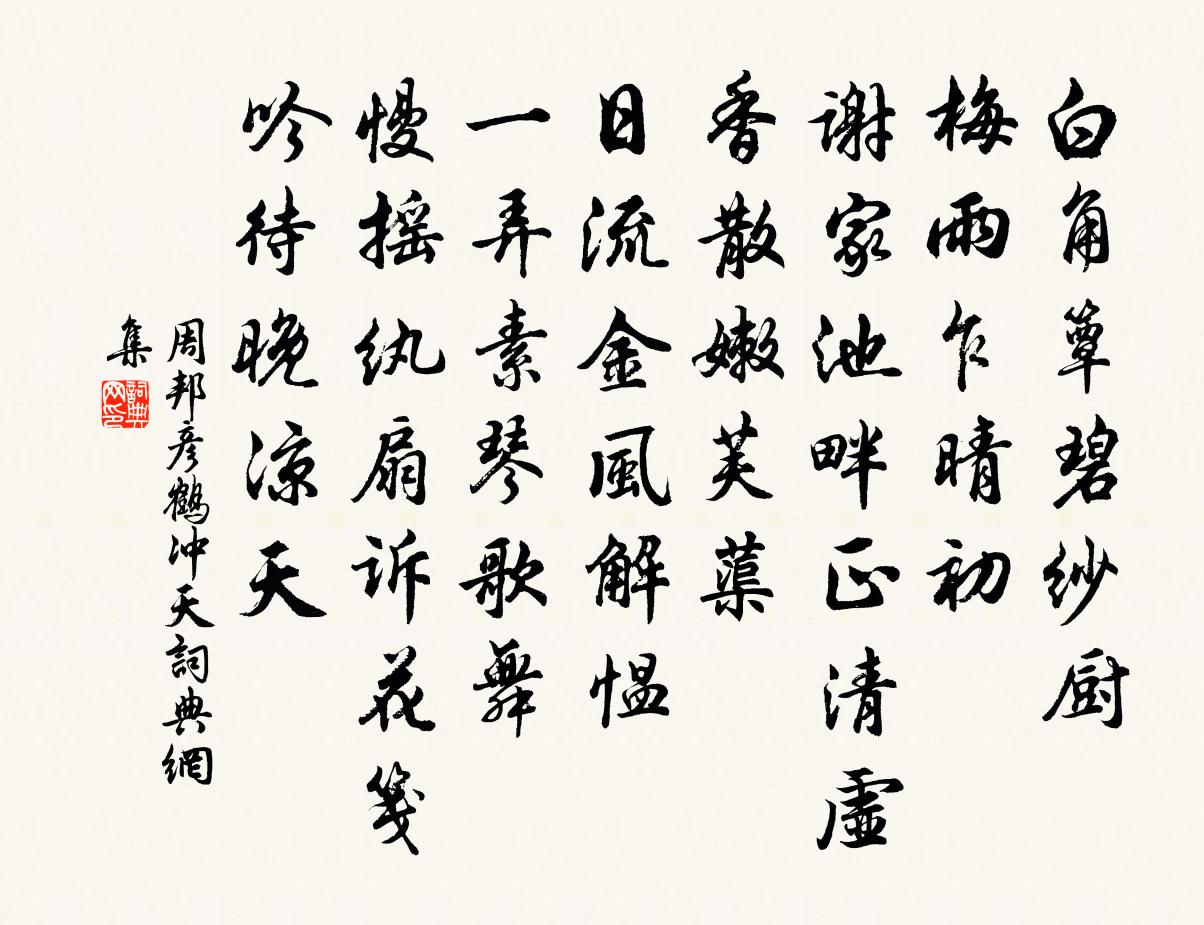 白角簟碧紗厨
梅雨乍晴初
謝家池畔正清虛
香散嫩芙蕖
日流金風解愠
一弄素琴歌舞
慢摇紈扇訴花箋
吟待晚凉天
周邦彦鶴冲天詞典網
集
詞典網印